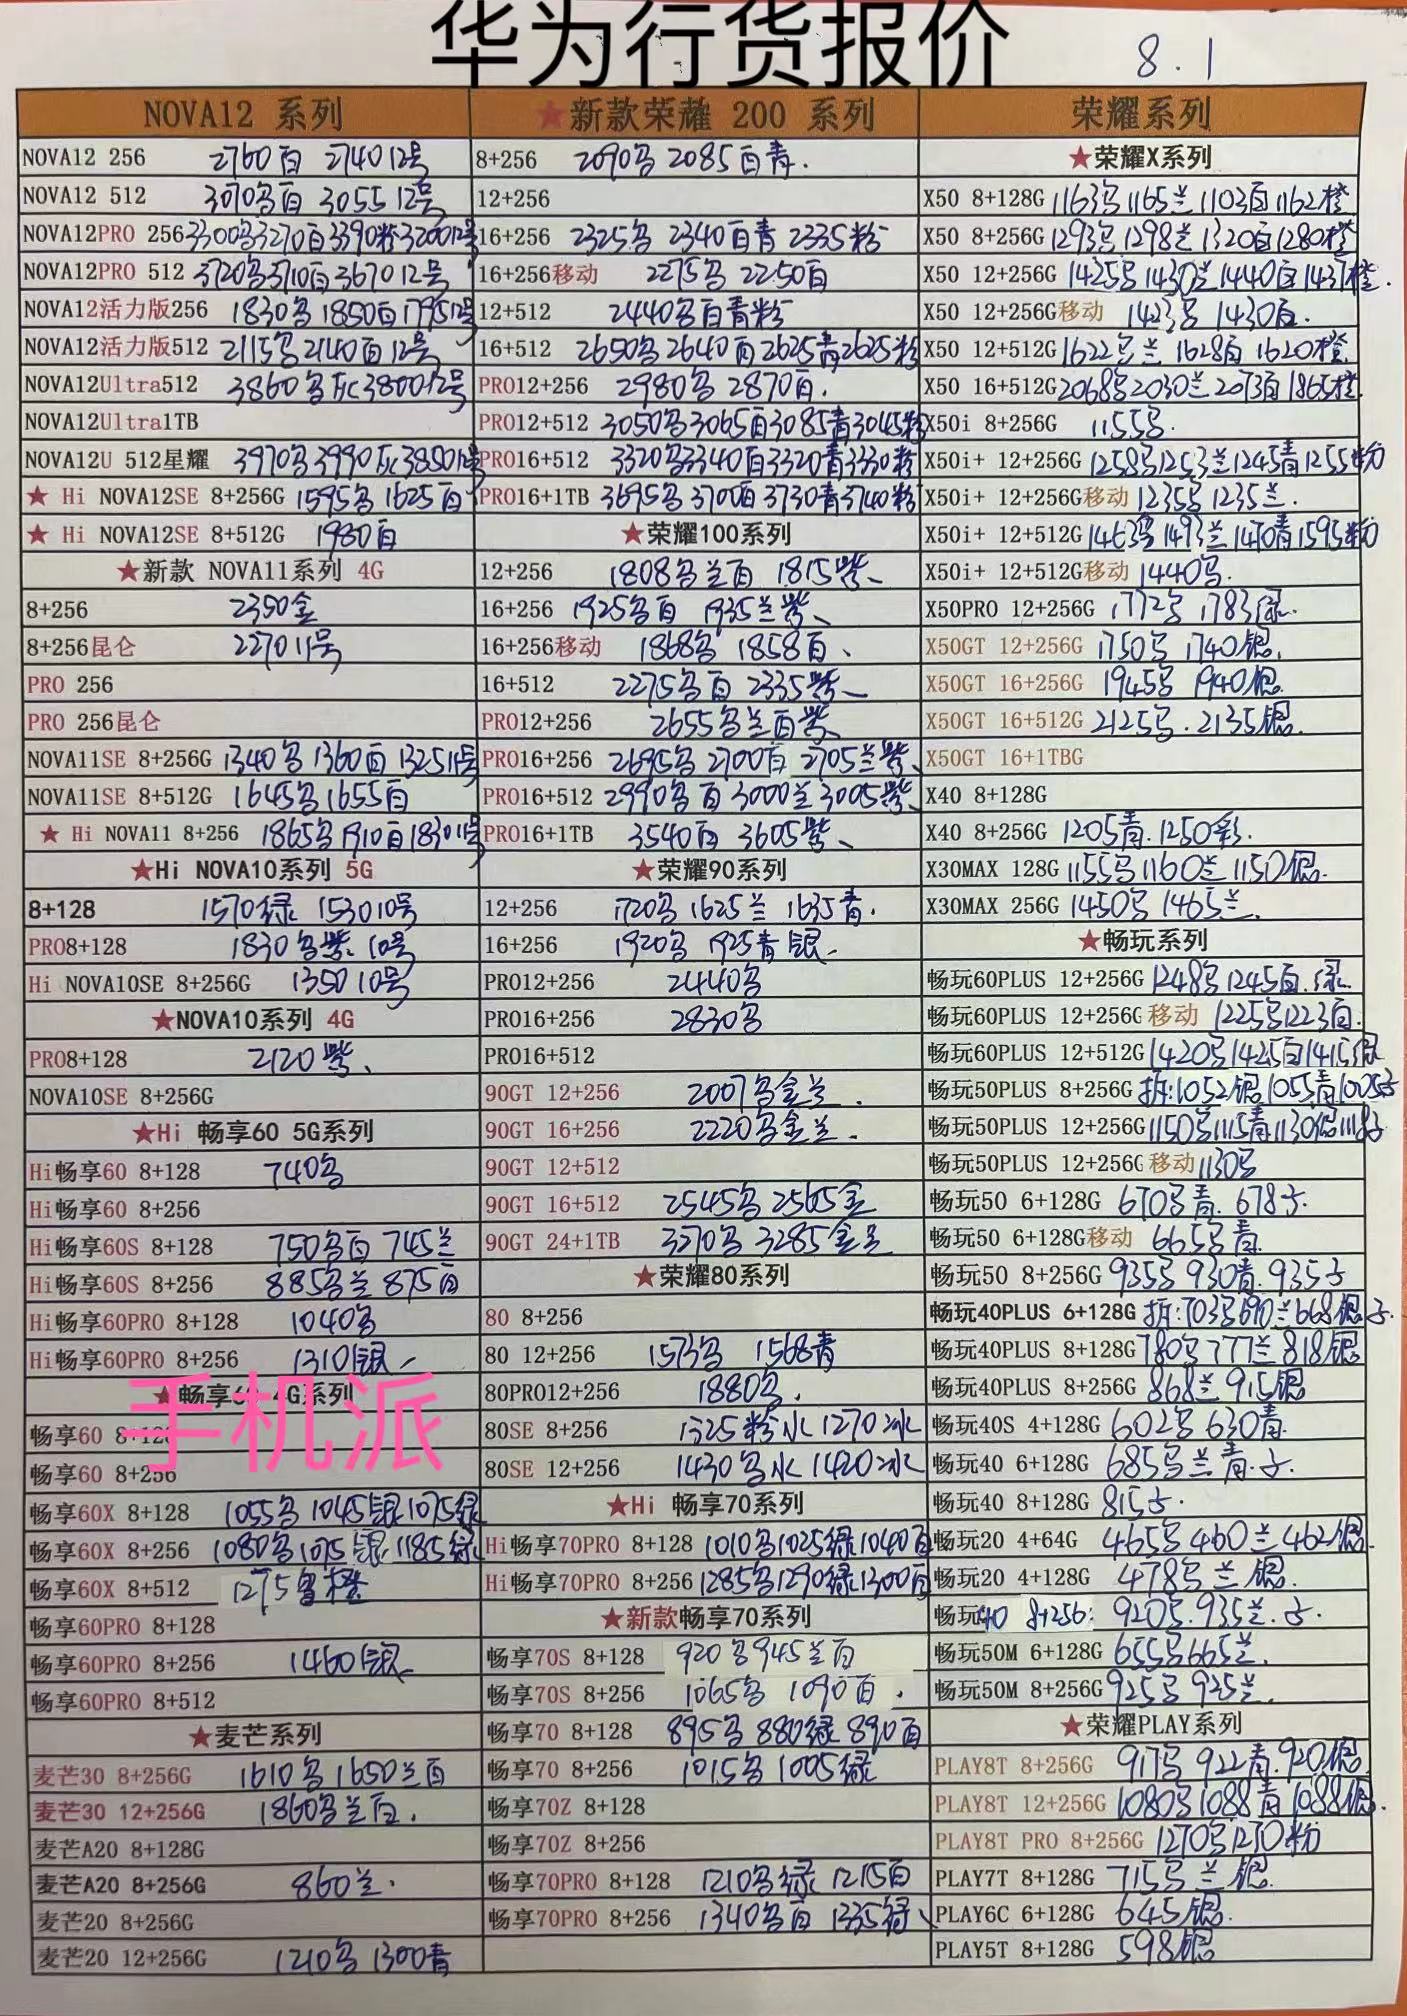 华为行货报价
8.1
NOVA12 系列
NOVA12 256 2760白 2740 12号
NOVA12 512 3070乌白 3055 12号
NOVA12PRO 256 3300乌3270白3390粉3200 12号
NOVA12PRO 512 3720乌3710白3670 12号
NOVA12活力版256 1830乌1850白1795 12号
NOVA12活力版512 2115乌2140白12号
NOVA12Ultra512 3860乌灰3800 12号
NOVA12Ultra1TB
NOVA12U 512星耀 3970乌3990灰3850 12号
★ Hi NOVA12SE 8+256G 1595乌 1625白
★ Hi NOVA12SE 8+512G 1980白
★新款 NOVA11系列 4G
8+256 2350金
8+256昆仑 2270 11号
PRO 256
PRO 256昆仑
NOVA11SE 8+256G 1340乌 1360白 1325 11号
NOVA11SE 8+512G 1645乌1655白
★ Hi NOVA11 8+256 1865乌1910白1830 11号
★Hi NOVA10系列 5G
8+128 1570绿 1530 10号
PRO8+128 1830乌紫、10号
Hi NOVA10SE 8+256G 1350 10号
★NOVA10系列 4G
PRO8+128 2120紫、
NOVA10SE 8+256G
★Hi 畅享60 5G系列
Hi畅享60 8+128 740乌
Hi畅享60 8+256
Hi畅享60S 8+128 750乌白 745兰
Hi畅享60S 8+256 885乌兰 875白
Hi畅享60PRO 8+128 1040乌
Hi畅享60PRO 8+256 1310银
★畅享60 4G系列
手机派
畅享60 8+128
畅享60 8+256
畅享60X 8+128 1055乌 1045银1075绿
畅享60X 8+256 1080乌1075银1185绿
畅享60X 8+512 1275乌橙
畅享60PRO 8+128
畅享60PRO 8+256 1460银
畅享60PRO 8+512
★麦芒系列
麦芒30 8+256G 1610乌1650兰白
麦芒30 12+256G 1860乌兰白.
麦芒A20 8+128G
麦芒A20 8+256G 860兰.
麦芒20 8+256G
麦芒20 12+256G 1210乌 1300青
★新款荣耀 200 系列
8+256 2090乌2085白青.
12+256
16+256 2325乌 2340白青 2335粉
16+256移动 2275乌 2250白
12+512 2440乌白青粉
16+512 2650乌2640白2625青2625粉
PRO12+256 2980乌 2870白.
PRO12+512 3050乌3065白3085青3045粉
PRO16+512 3320乌3340白3320青3330粉
PRO16+1TB 3695乌3700白3730青3740粉
★荣耀100系列
12+256 1808乌兰白 1815紫、
16+256 1925乌白 1935兰紫、
16+256移动 1868乌 1858白、
16+512 2275乌白 2335紫、
PRO12+256 2655乌兰白紫、
PRO16+256 2695乌2700白2705兰紫、
PRO16+512 2990乌白3000兰3005紫、
PRO16+1TB 3540白 3605紫、
★荣耀90系列
12+256 1720乌 1625兰 1635青.
16+256 1920乌 1925青银
PRO12+256 2440乌
PRO16+256 2830乌
PRO16+512
90GT 12+256 2007乌金兰.
90GT 16+256 2220乌金兰.
90GT 12+512
90GT 16+512 2545乌2565金
90GT 24+1TB 3270乌3285金兰
★荣耀80系列
80 8+256
80 12+256 1573乌 1568青
80PRO12+256 1880乌.
80SE 8+256 1325粉水1270冰
80SE 12+256 1430乌水1420冰
★Hi 畅享70系列
Hi畅享70PRO 8+128 1010乌1025绿1040白
Hi畅享70PRO 8+256 1285乌1290绿1300白
★新款畅享70系列
畅享70S 8+128 920乌945兰白
畅享70S 8+256 1065乌 1090白.
畅享70 8+128 895乌 880绿 890白
畅享70 8+256 1015乌 1005绿
畅享70Z 8+128
畅享70Z 8+256
畅享70PRO 8+128 1210乌绿 1215白
畅享70PRO 8+256 1340乌白 1335绿、
荣耀系列
★荣耀X系列
X50 8+128G 1163乌1165兰1103白1162橙
X50 8+256G 1293乌1298兰1320白1280橙
X50 12+256G 1425乌1430兰1440白1437橙.
X50 12+256G移动 1423乌 1430白.
X50 12+512G 1622乌兰 1628白 1620橙
X50 16+512G 2068乌2030兰2073白1865橙
X50i 8+256G 1155乌.
X50i+ 12+256G 1258乌1253兰1245青1255粉
X50i+ 12+256G移动 1235乌1235兰.
X50i+ 12+512G 1463乌1493兰1470青1595粉
X50i+ 12+512G移动 1440乌.
X50PRO 12+256G 1772乌 1783绿.
X50GT 12+256G 1750乌 1740银.
X50GT 16+256G 1945乌 1940银.
X50GT 16+512G 2125乌.2135银.
X50GT 16+1TBG
X40 8+128G
X40 8+256G 1205青.1250彩.
X30MAX 128G 1155乌1160兰1150银.
X30MAX 256G 1450乌1465兰.
★畅玩系列
畅玩60PLUS 12+256G 1248乌1245白.绿.
畅玩60PLUS 12+256G 移动 1225乌1223白.
畅玩60PLUS 12+512G 1420乌1425白1415绿
畅玩50PLUS 8+256G 拆:1052银1055青
畅玩50PLUS 12+256G 1150乌1115青1130银
畅玩50PLUS 12+256G 移动 1130乌
畅玩50 6+128G 670乌青.678子.
畅玩50 6+128G移动 665乌青.
畅玩50 8+256G 935乌930青.935子
畅玩40PLUS 6+128G 拆:703乌690兰668银子.
畅玩40PLUS 8+128G 780乌777兰818银
畅玩40PLUS 8+256G 868兰915银
畅玩40S 4+128G 602乌 630青.
畅玩40 6+128G 685乌兰青.子.
畅玩40 8+128G 815子.
畅玩20 4+64G 465乌460兰462银.
畅玩20 4+128G 478乌兰银.
畅玩40 8+256: 920乌.935兰.子.
畅玩50M 6+128G 655乌665兰.
畅玩50M 8+256G 925乌935兰.
★荣耀PLAY系列
PLAY8T 8+256G 917乌 922青.920银.
PLAY8T 12+256G 1080乌1088青1088银.
PLAY8T PRO 8+256G 1270乌1270粉
PLAY7T 8+128G 715乌兰银.
PLAY6C 6+128G 645银.
PLAY5T 8+128G 598银